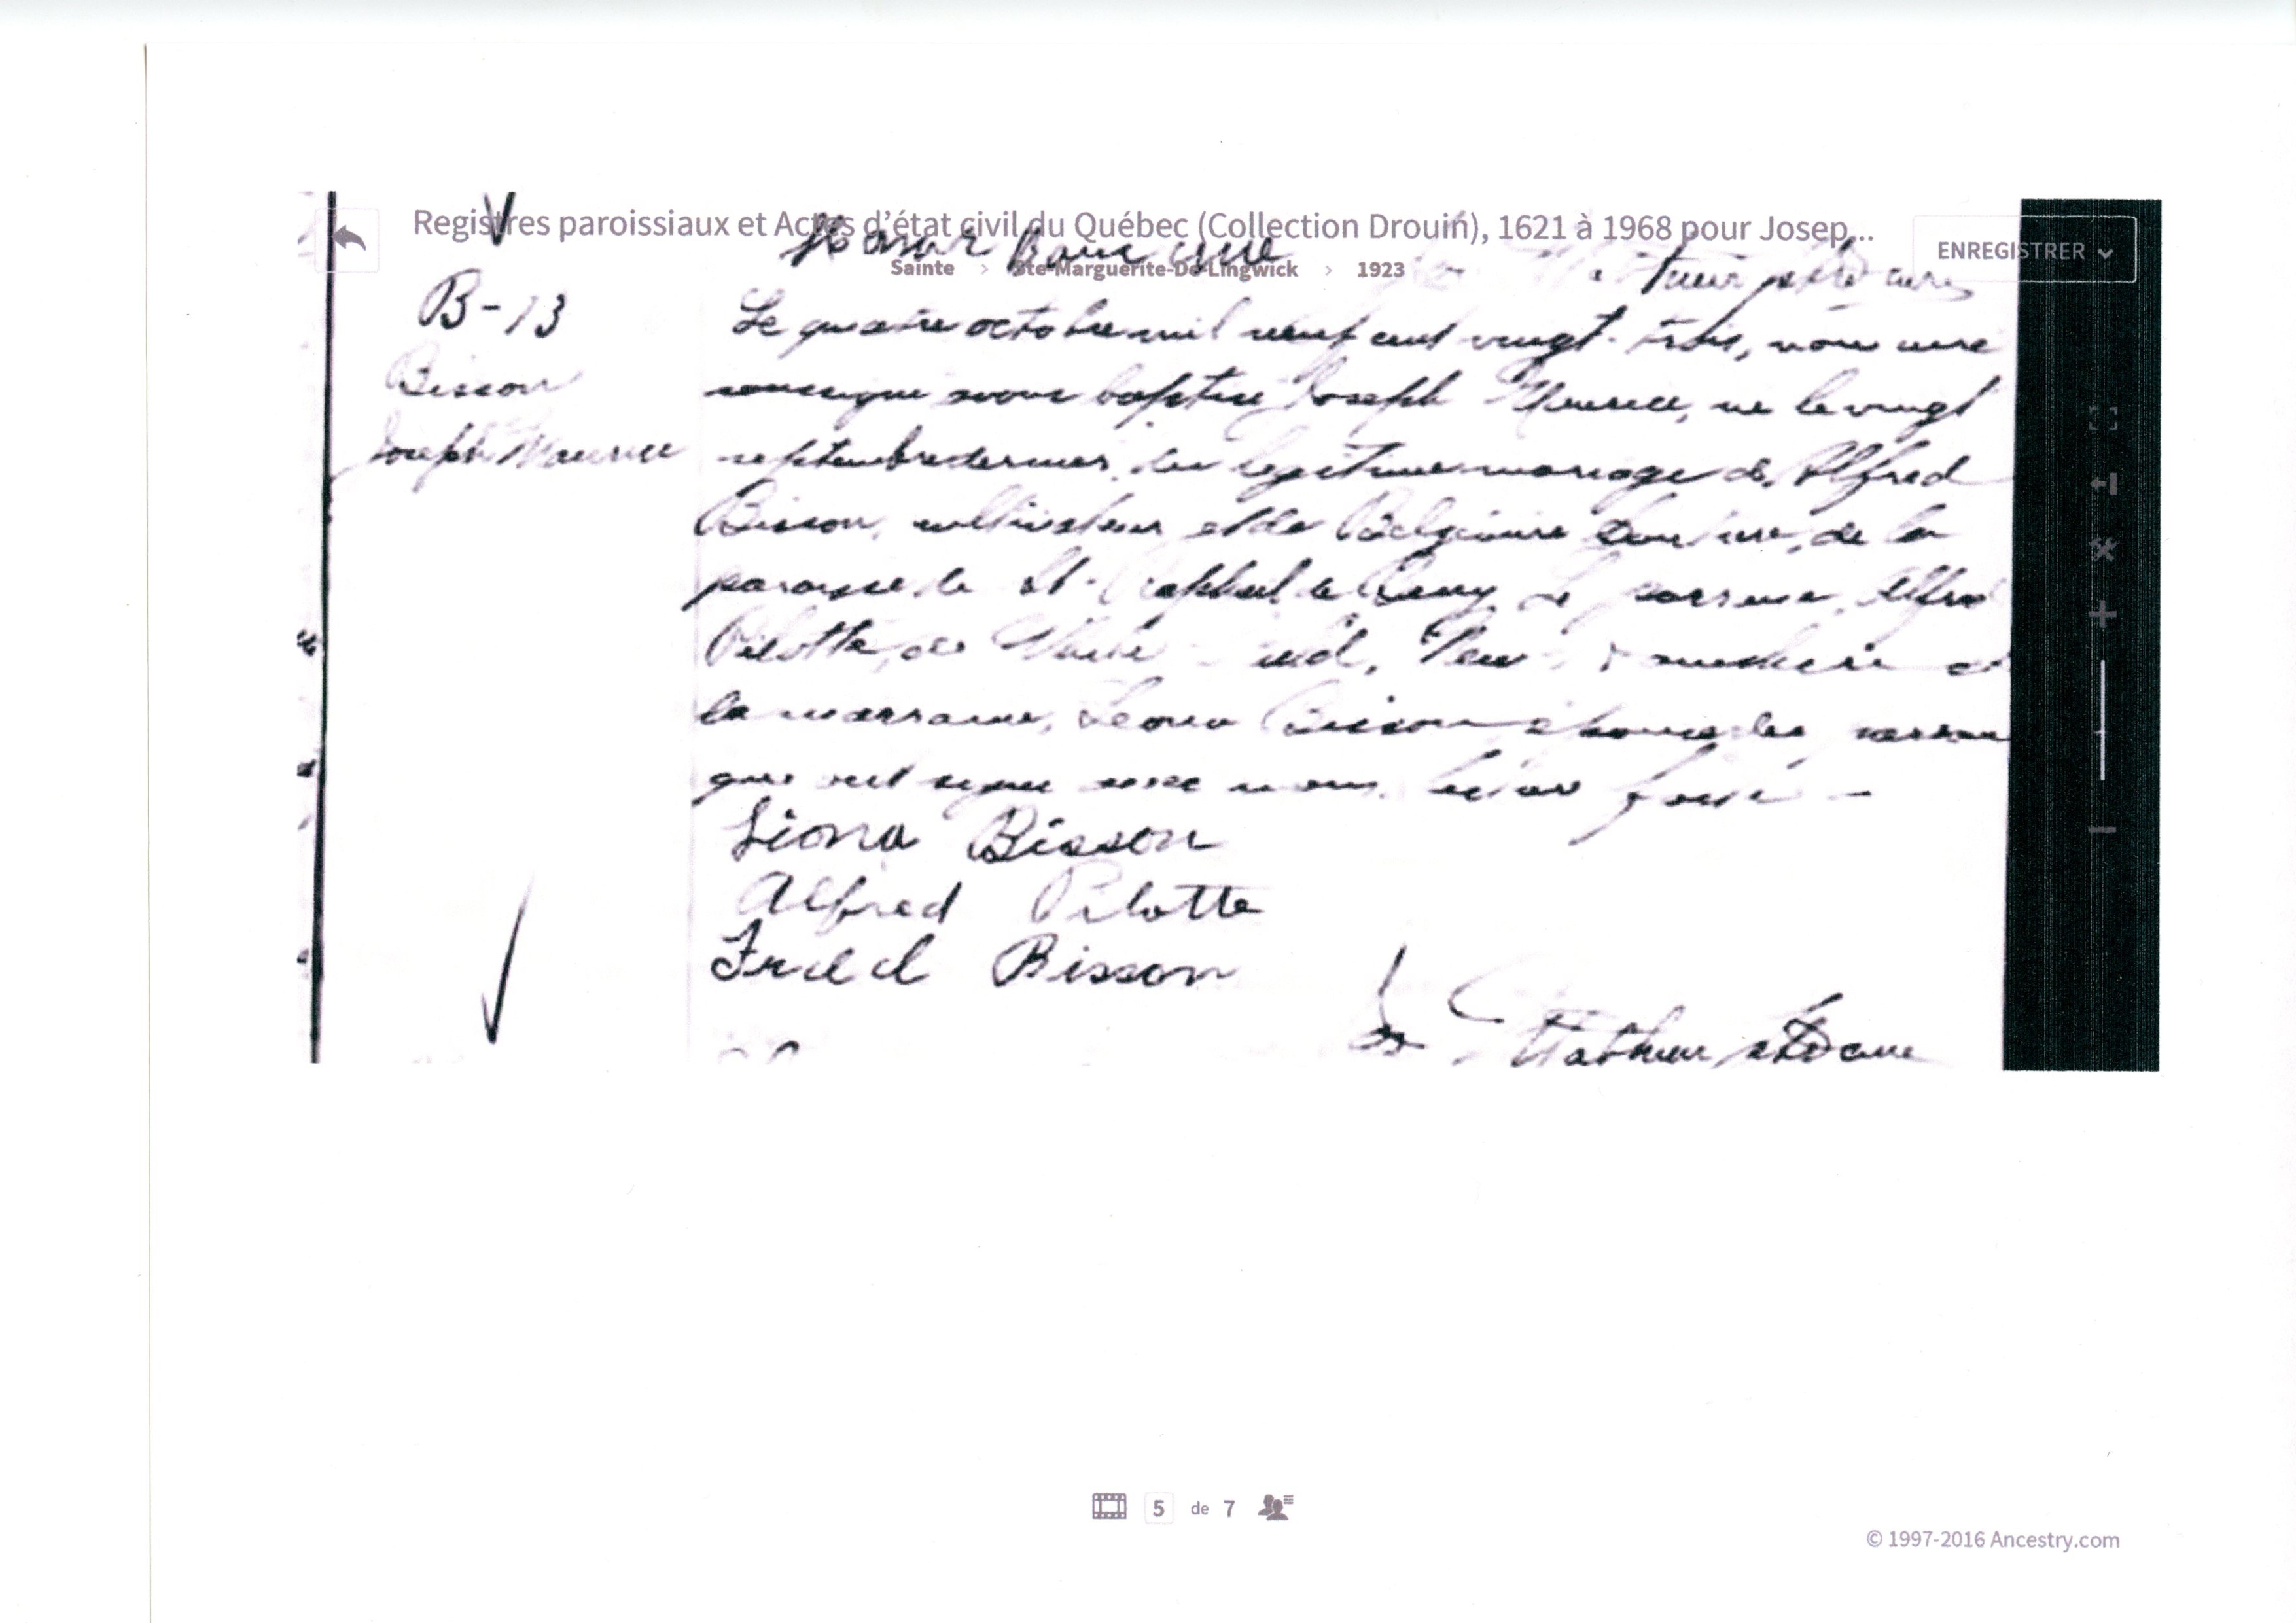 Registres paroissiaux et Actes d'état civil du Québec (Collection Drouin), 1621 à 1968 pour Josep...
ENREGISTRER
Sainte > Ste-Marguerite-De-Lingwick > 1923
curé
B-13
Bisson
Joseph Maurice
Le quatre octobre mil neuf cent vingt-trois, nous curé
soussigné avons baptisé Joseph Maurice, né le vingt
septembre dernier, du légitime mariage de Alfred
Bisson, cultivateur et de de la
paroisse de St-Raphael de Bury. Le parrain, Alfred
Pilotte, de et
la marraine, Leona Bisson
qui ont signé avec nous. Lecture faite -
Liona Bisson
Alfred Pilotte
Fred Bisson
ptre curé
5 de 7
© 1997-2016 Ancestry.com